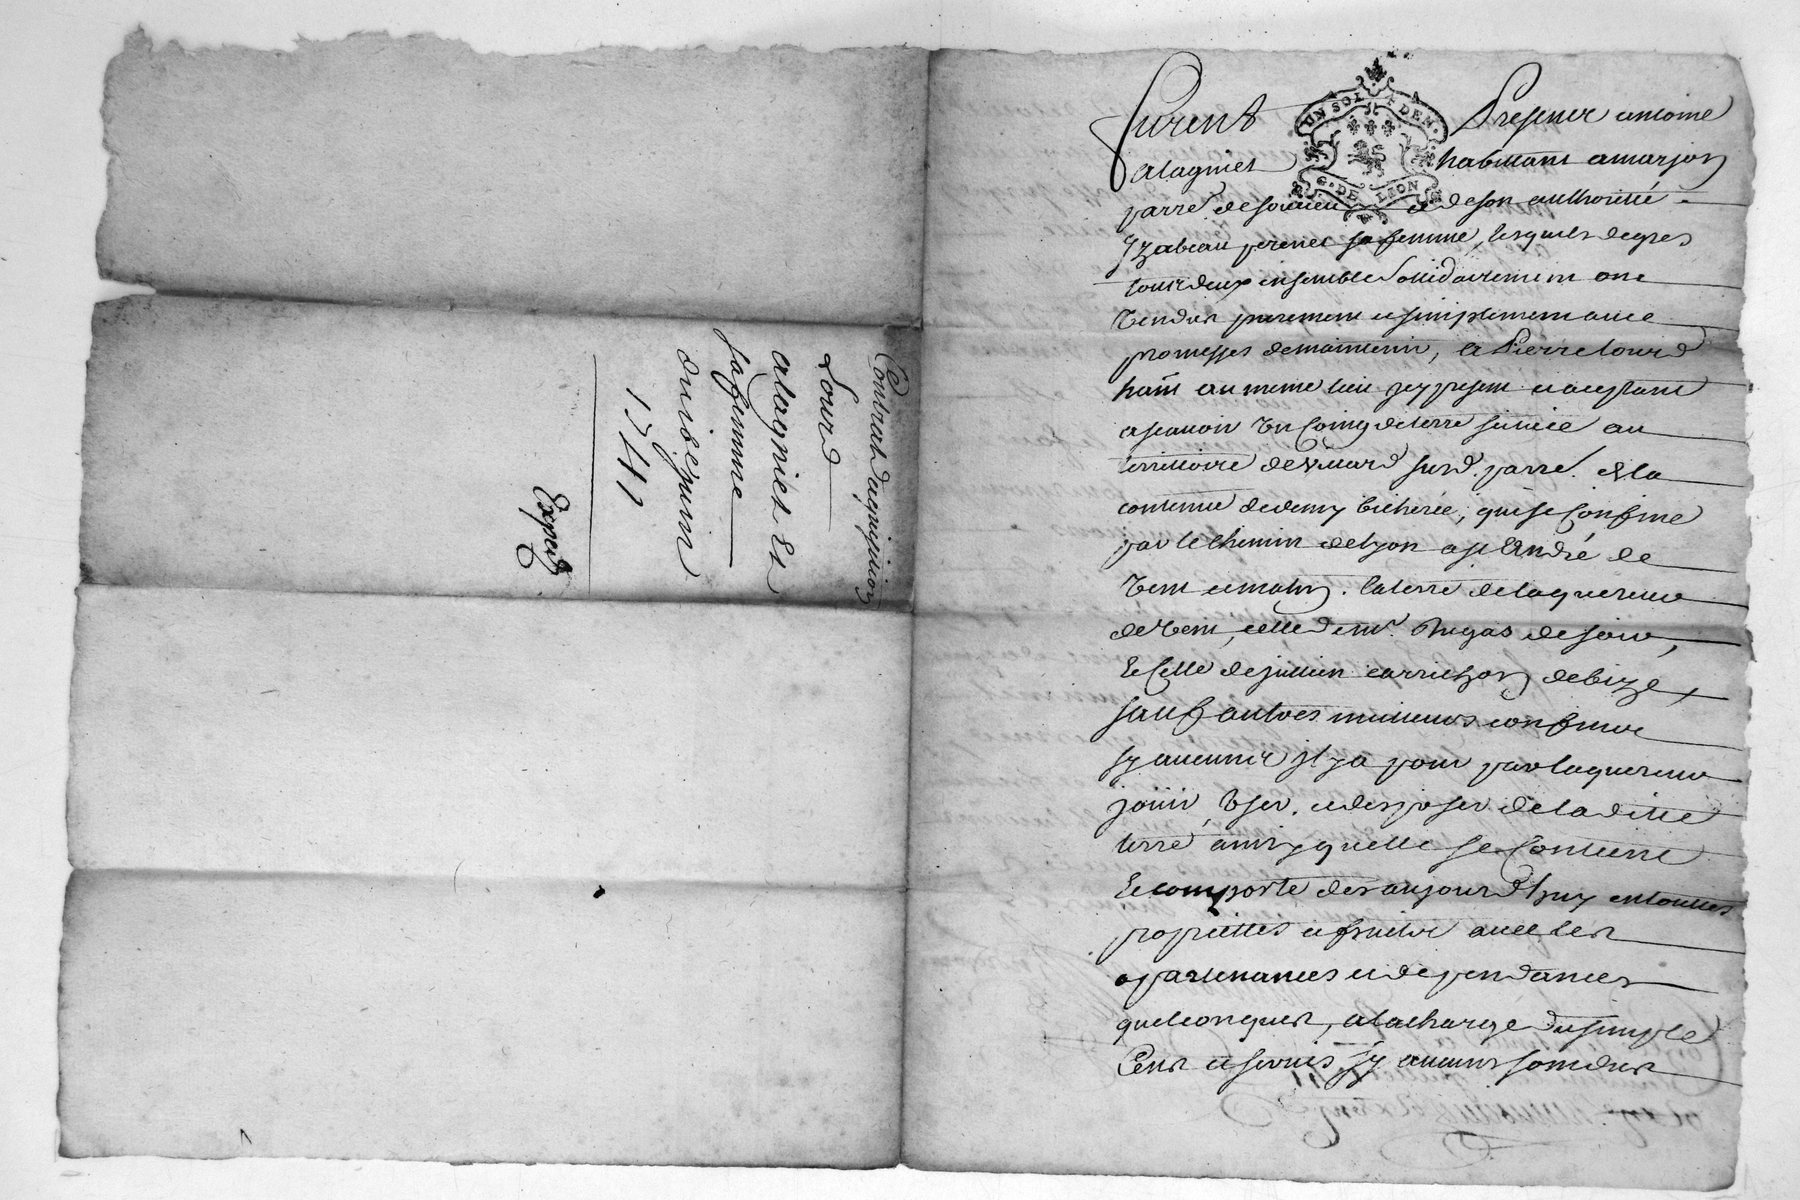 Contrat daquisition
Lourd
alagnier Et
sa femme
du i6e juin
1741
Expedé
UN SOL 4 DEN.
G. DE LION
Furent Presens antoine
alagnier habitant a marjon
parre de soucieu et de son authoritté
Yzabeau perenet sa femme, lesquels de gres
tous deux ensemble sollidairement ont
Vendus purement et simplement avec
promesses de maintenir, a Pierre Lourd
hant au meme lieu icy present et aceptant
ascavoir Un Coing de terre scituée au
territoire de Viuard susd. parre. de la
contenue de demy bicherée, qui se Confine
par le chemin de lyon a st André de
Vent et matin. la terre de laquereur
de Vent, celle de mr. Dugas de soir,
Et Celle de jullien carrichon de bize
sauf autres meilleurs confins
sy aucuns il y a pour par laquereur
jouir, Vser, et disposer de la ditte
terre ainsy quelle se Contient
Et comporte des aujourd'huy en touttes
proprietttes et fruits avec ses
apartenances et dependances
quelconques, a la charge du simple
Cens et servis sy aucuns sont dus